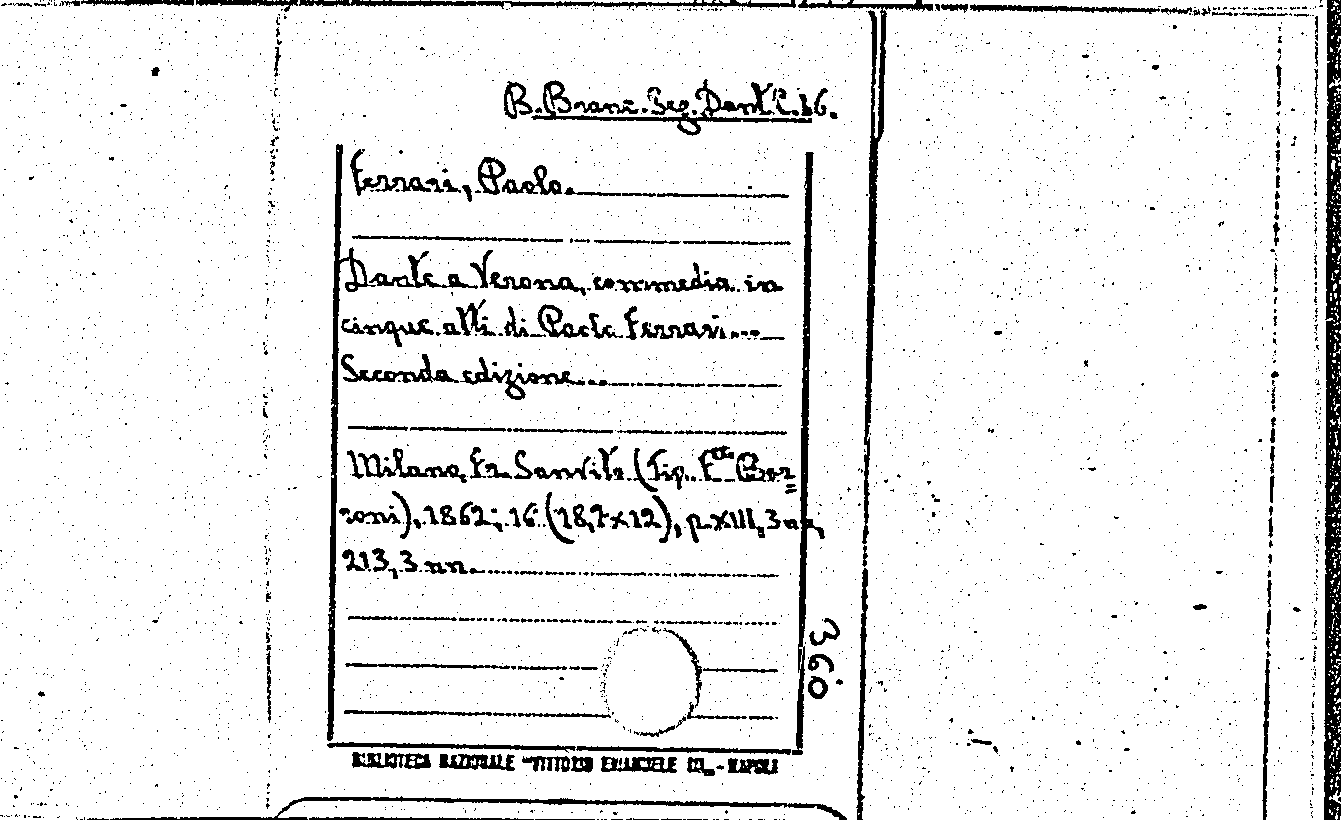 B. Branc. Seg. Dant. C. 16.
Ferrari, Paolo.
Dante a Verona, commedia in
cinque atti di Paolo Ferrari...
Seconda edizione...
Milano, Fr. Sanvito (Tip. F.lli Boz=
zoni), 1862; 16° (18,7x12), p. XIII, 3 nn,
213, 3 nn.
360
BIBLIOTECA NAZIONALE "VITTORIO EMANUELE III" - NAPOLI